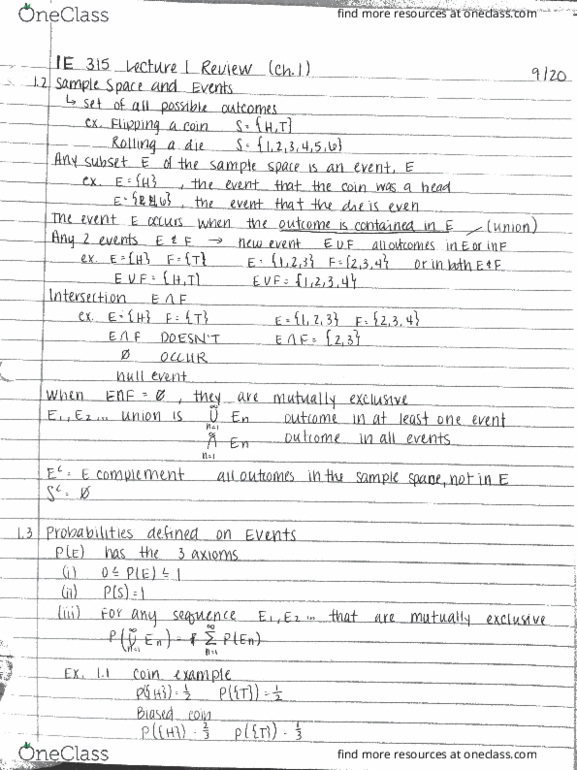 OneClass
find more resources at oneclass.com
IE 315 Lecture 1 Review (Ch.1)
9/20
1.2 Sample Space and Events
↳ set of all possible outcomes
ex. Flipping a coin S = {H,T}
Rolling a die S = {1,2,3,4,5,6}
Any subset E of the sample space is an event, E
ex. E = {H} , the event that the coin was a head
E = {2,4,6}, the event that the die is even
The event E occurs when the outcome is contained in E (union)
Any 2 events E & F → new event E∪F all outcomes in E or in F
ex. E = {H} F = {T} E = {1,2,3} F = {2,3,4} or in both E & F
E∪F = {H,T} E∪F = {1,2,3,4}
Intersection E∩F
ex. E = {H} F = {T} E = {1,2,3} F = {2,3,4}
E∩F DOESN'T E∩F = {2,3}
Ø OCCUR
null event
When E∩F = Ø , they are mutually exclusive
E₁, E₂ ... union is ∞∪n=1 En outcome in at least one event
∞∩n=1 En outcome in all events
Eᶜ = E complement all outcomes in the sample space, not in E
Sᶜ = Ø
1.3 Probabilities defined on Events
P(E) has the 3 axioms
(i) 0 ≤ P(E) ≤ 1
(ii) P(S) = 1
(iii) For any sequence E₁, E₂ ... that are mutually exclusive
P(∞∪n=1 En) = ∞∑n=1 P(En)
Ex. 1.1 coin example
P({H}) = 1/2 P({T}) = 1/2
Biased coin
P({H}) = 2/3 P({T}) = 1/3
OneClass
find more resources at oneclass.com